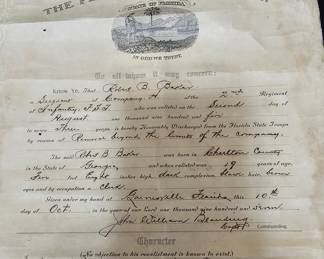 STATE OF FLORIDA
IN GOD WE TRUST
To all whom it may concern:
KNOW YE, That Robert B. Baker
a Sergeant of Company A of the 2nd Regiment
of Infantry, F.S.T. who was enlisted on the Second day of
August one thousand nine hundred and five
to serve Three years, is hereby Honorably Discharged from the Florida State Troops
by reason of Removal beyond the limits of the company.
The said Robt B. Baker was born in Charlton County
in the State of Georgia, and when enlisted was 19 years of age,
Five feet Eight inches high, dark complexion, hair, brown
eyes and by occupation a Clerk.
Given under my hand at Gainesville Florida this 10th
day of Oct. in the year of our Lord one thousand nine hundred and seven
John William
Capt Commanding.
Character
(No objection to his reenlistment is known to exist.)